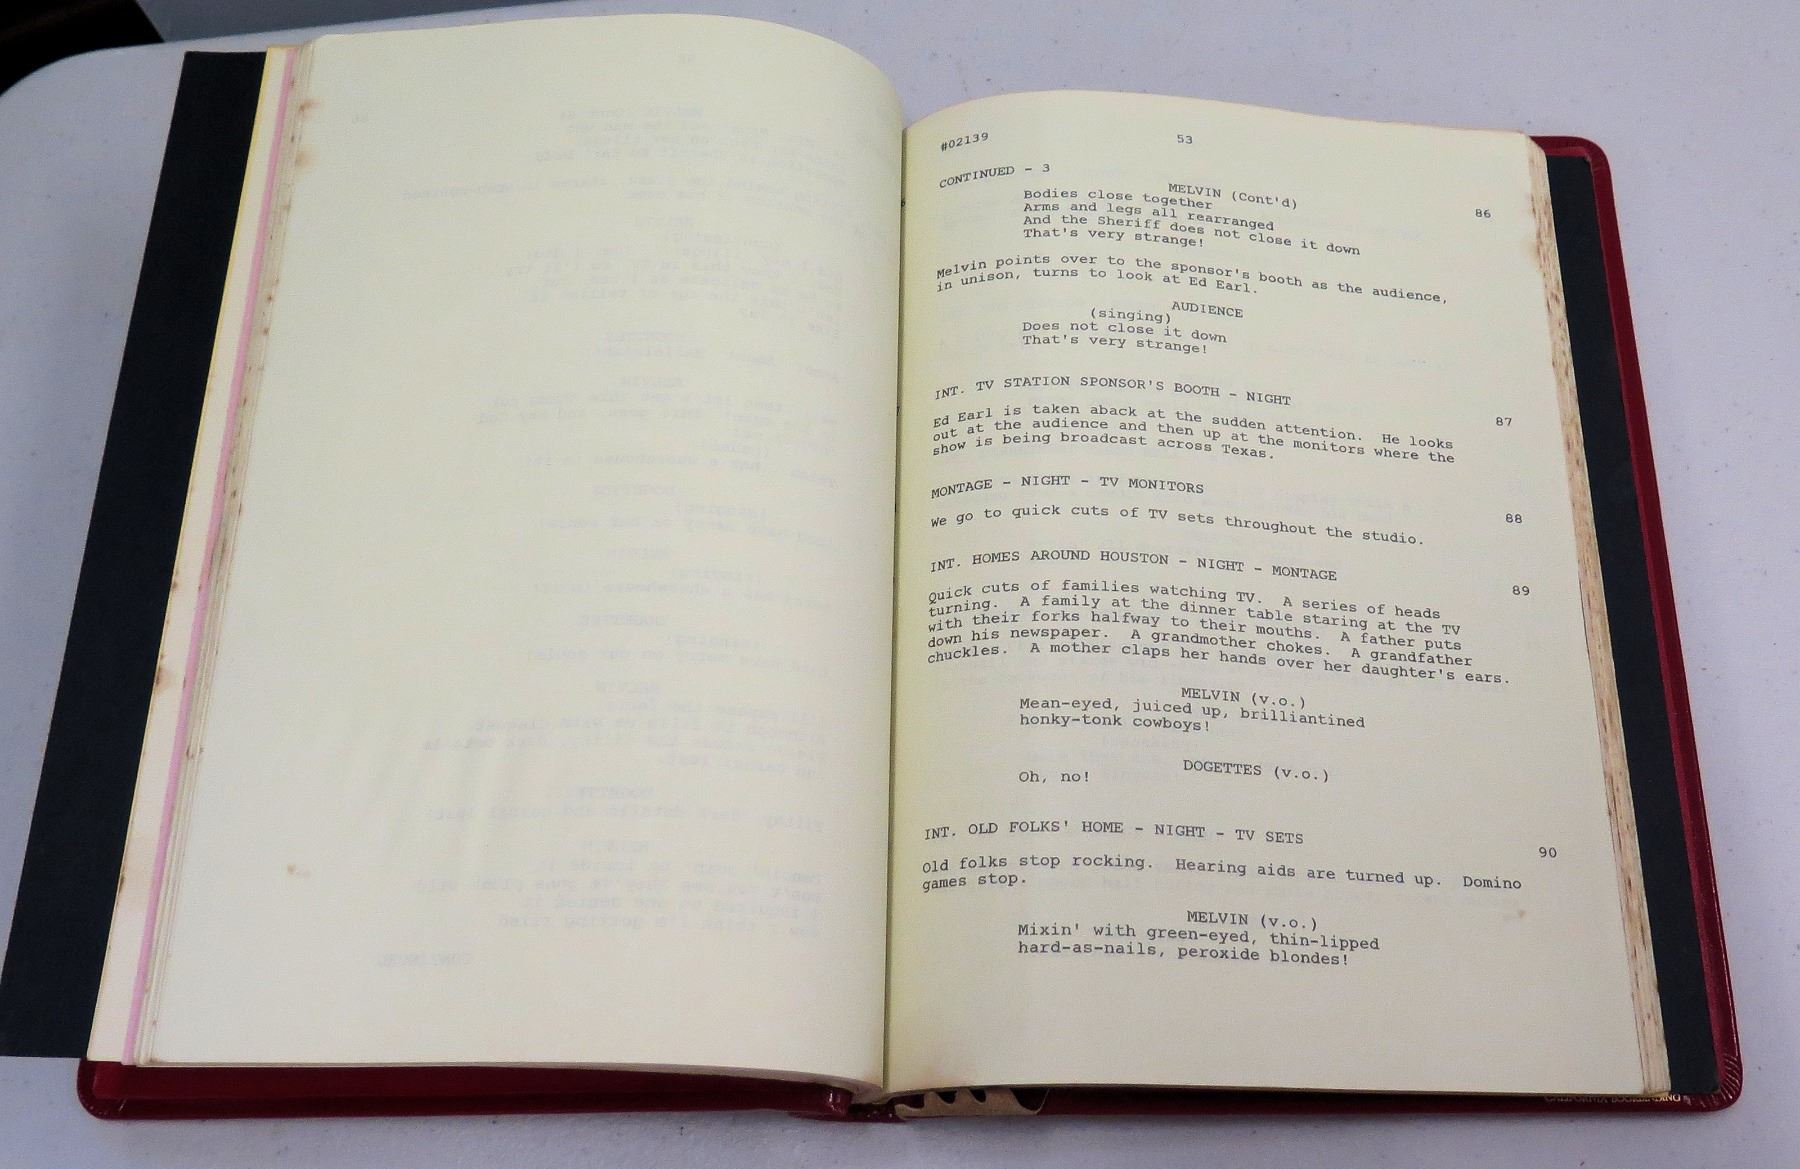 #02139
53
CONTINUED - 3
MELVIN (Cont'd)
86
Bodies close together
Arms and legs all rearranged
And the Sheriff does not close it down
That's very strange!
Melvin points over to the sponsor's booth as the audience,
in unison, turns to look at Ed Earl.
AUDIENCE
(singing)
Does not close it down
That's very strange!
INT. TV STATION SPONSOR'S BOOTH - NIGHT
87
Ed Earl is taken aback at the sudden attention.  He looks
out at the audience and then up at the monitors where the
show is being broadcast across Texas.
MONTAGE - NIGHT - TV MONITORS
88
We go to quick cuts of TV sets throughout the studio.
INT. HOMES AROUND HOUSTON - NIGHT - MONTAGE
89
Quick cuts of families watching TV.  A series of heads
turning.  A family at the dinner table staring at the TV
with their forks halfway to their mouths.  A father puts
down his newspaper.  A grandmother chokes.  A grandfather
chuckles.  A mother claps her hands over her daughter's ears.
MELVIN (v.o.)
Mean-eyed, juiced up, brilliantined
honky-tonk cowboys!
DOGETTES (v.o.)
Oh, no!
INT. OLD FOLKS' HOME - NIGHT - TV SETS
90
Old folks stop rocking.  Hearing aids are turned up.  Domino
games stop.
MELVIN (v.o.)
Mixin' with green-eyed, thin-lipped
hard-as-nails, peroxide blondes!
CALIFORNIA BOOKBINDING